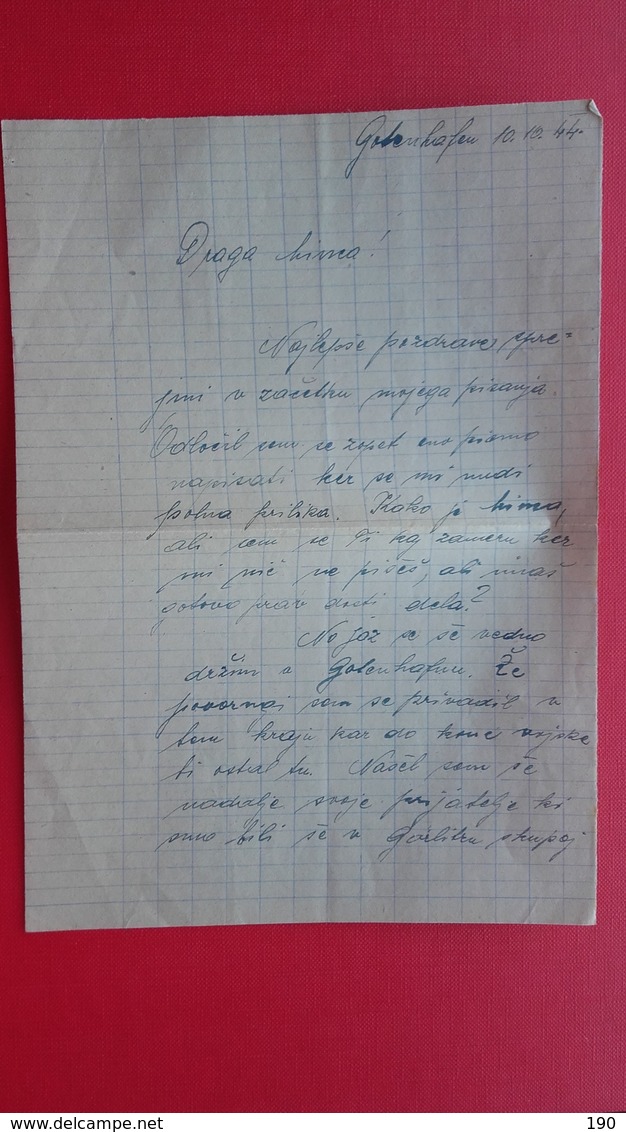 Gotenhafen 10.12.44.
Draga Mimca!
Najlepše pozdrave spre=
jmi v začetku mojega pisanja.
Odločil sem se zopet eno pismo
napisati ker se mi nudi
polna prilika. Kako je Mimca,
ali sem se Ti kaj zameru ker
mi nič ne pišeš, ali imaš
gotovo prav dosti dela?
No jaz se še vedno
držim v Gotenhafnu. Že
sem se privadil v
tem kraju kar do konc vojske
bi ostal tu. Našel sem še
nadalje svoje prijatelje ki
smo bili še v Görlitzu skupaj
www.delcampe.net
190